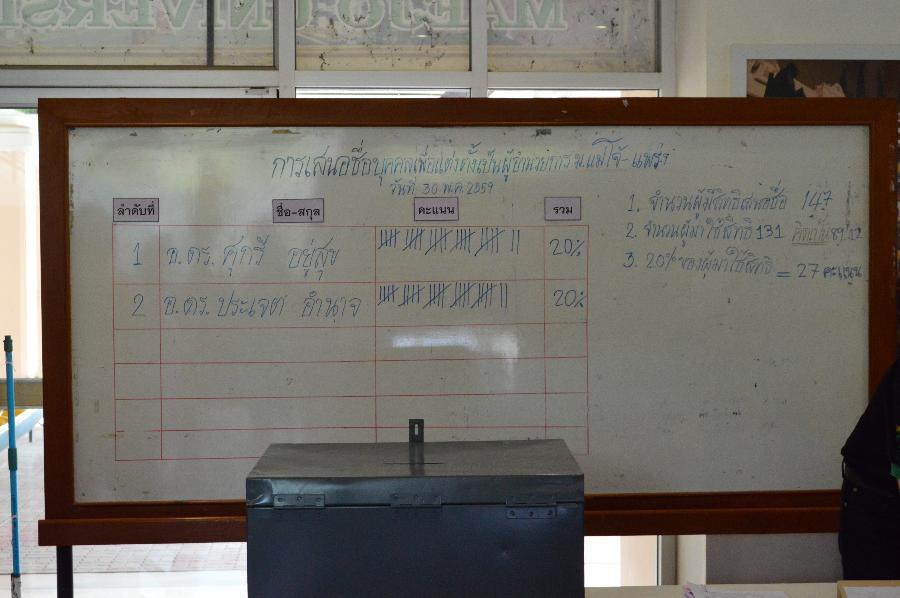 MAEJO UNIVERSI
การเสนอชื่อบุคคลเพื่อแต่งตั้งเป็นผู้อำนวยการ ม.แม่โจ้-แพร่ฯ
วันที่ 30 พ.ค. 2559
ลำดับที่ ชื่อ-สกุล คะแนน รวม
1 อ.ดร. ศุภรี อยู่สุข 20%
2 อ.ดร. ประเจต อำนาจ 20%
1. จำนวนผู้มีสิทธิเสนอชื่อ 147
2. จำนวนผู้มาใช้สิทธิ 131 คิดเป็น 89.12
3. 20% ของผู้มาใช้สิทธิ = 27 คะแนน